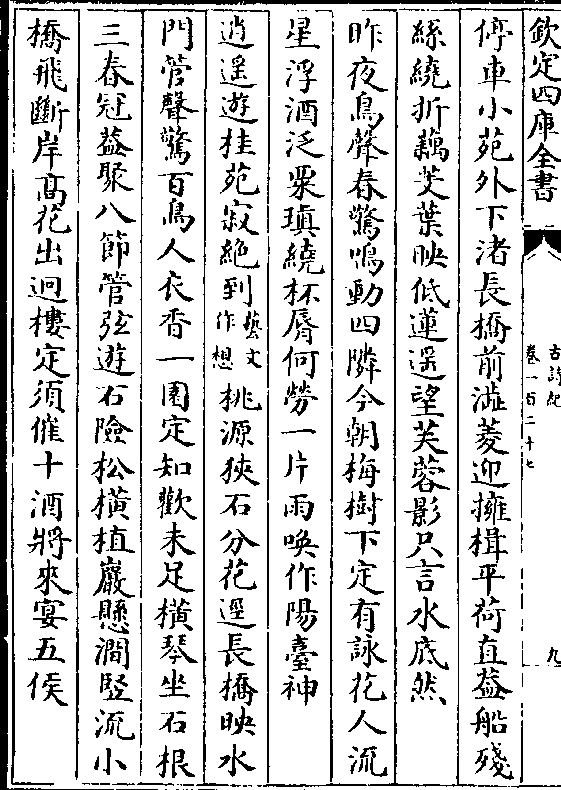 欽定四庫全書
古詩紀
卷一百二十七
九
停車小苑外下渚長橋前澁菱迎擁楫平荷直葢船殘
絲繞折藕芰葉映低蓮遥望芙蓉影只言水底然
昨夜鳥聲春驚鳴動四隣今朝梅樹下定有詠花人流
星浮酒泛粟瑱繞杯脣何勞一片雨喚作陽臺神
逍遥遊桂苑寂絶到藝文作想桃源狹石分花逕長橋映水
門管聲驚百鳥人衣香一園定知歡未足横琴坐石根
三春冠葢聚八節管弦遊石險松横植巖懸澗竪流小
橋飛斷岸髙花出迥樓定須催十酒將來宴五侯